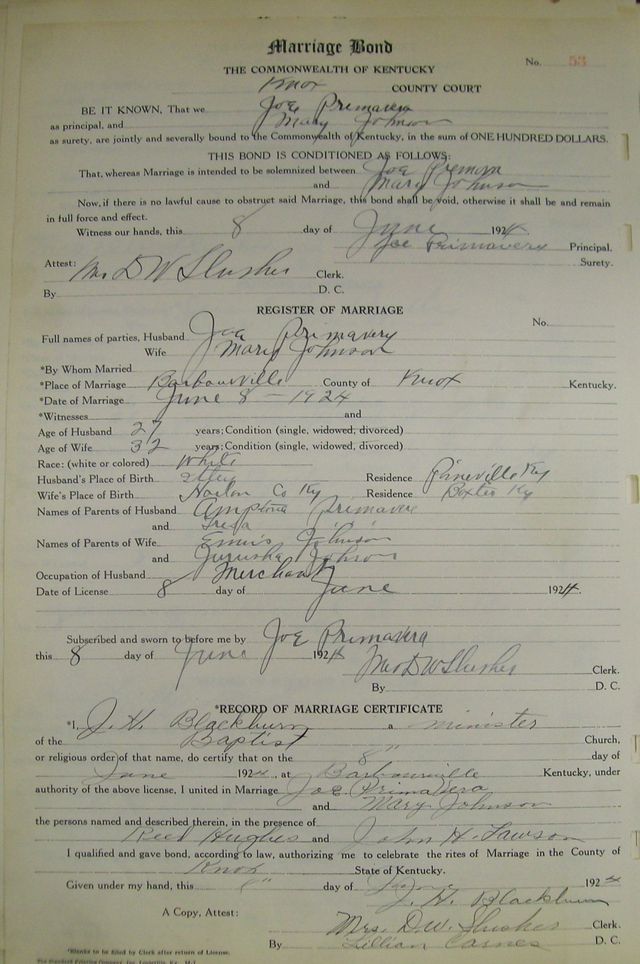 Marriage Bond
No. 53
THE COMMONWEALTH OF KENTUCKY
Knox COUNTY COURT
BE IT KNOWN, That we Joe Primavera
as principal, and Mary Johnson
as surety, are jointly and severally bound to the Commonwealth of Kentucky, in the sum of ONE HUNDRED DOLLARS.
THIS BOND IS CONDITIONED AS FOLLOWS:
That, whereas Marriage is intended to be solemnized between Joe
and Mary Johnson
Now, if there is no lawful cause to obstruct said Marriage, this bond shall be void, otherwise it shall be and remain
in full force and effect.
Witness our hands, this 8 day of June 1924.
Joe Primavery Principal.
Surety.
Attest: Mrs D W Slusher Clerk.
By D. C.
REGISTER OF MARRIAGE
No.
Full names of parties, Husband Joe Primavery
Wife Mary Johnson
*By Whom Married
*Place of Marriage Barbourville County of Knox Kentucky.
*Date of Marriage June 8 - 1924
*Witnesses and
Age of Husband 27 years; Condition (single, widowed, divorced)
Age of Wife 32 years; Condition (single, widowed, divorced)
Race: (white or colored) White
Husband's Place of Birth Residence Pineville Ky
Wife's Place of Birth Harlan Co Ky Residence Boxter Ky
Names of Parents of Husband Primavere
and
Names of Parents of Wife Johnson
and Johnson
Occupation of Husband Merchant
Date of License 8 day of June 1924.
Subscribed and sworn to before me by Joe Primavera
this 8 day of June 1924 Mrs D W Slusher Clerk.
By D. C.
*RECORD OF MARRIAGE CERTIFICATE
*I, J. H. Blackburn a minister
of the Baptist Church,
or religious order of that name, do certify that on the 8" day of
June 1924, at Barbourville Kentucky, under
authority of the above license, I united in Marriage Joe Primavera
and Mary Johnson
the persons named and described therein, in the presence of
Reed Hughes and John H. Lawson
I qualified and gave bond, according to law, authorizing me to celebrate the rites of Marriage in the County of
Knox State of Kentucky.
Given under my hand, this day of June 1924
J. H. Blackburn
A Copy, Attest: Mrs. D.W. Slusher Clerk.
By Lillian Carnes D. C.
*Blanks to be filled by Clerk after return of License.